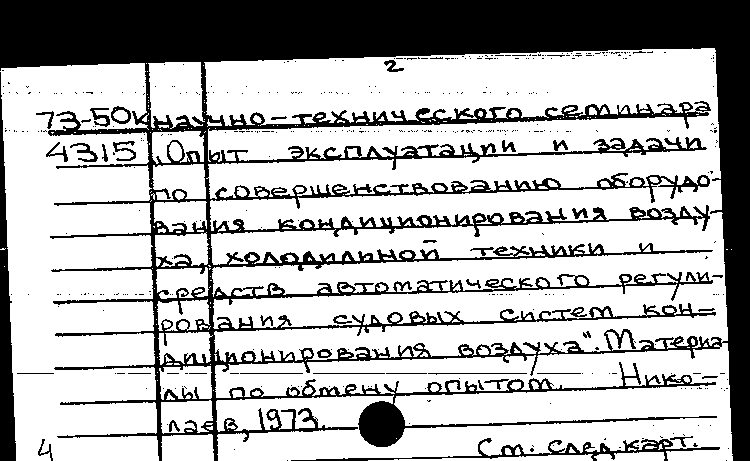 2
73-50к научно-технического семинара
4315 „Опыт эксплуатации и задачи
по совершенствованию оборудо-
вания кондиционирования возду-
ха, холодильной техники и
средств автоматического регули-
рования судовых систем кон=
диционирования воздуха". Материа-
лы по обмену опытом. Нико=
лаев, 1973.
4 См. след. карт.